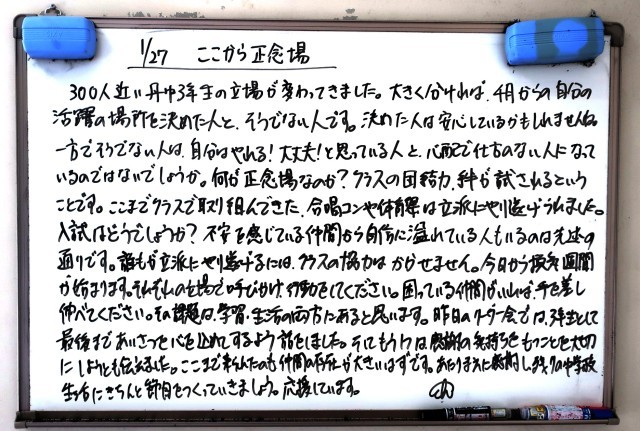 1/27 ここから正念場
300人近い丹中3年生の立場が変わってきました。大きく分ければ、4月からの自分の
活躍の場所を決めた人と、そうでない人です。決めた人は安心しているかもしれませんね。
一方でそうでない人は、自分はやれる!大丈夫!と思っている人と、心配で仕方のない人になって
いるのではないでしょうか。何が正念場なのか?クラスの団結力、絆が試されるという
ことです。ここまでクラスで取り組んできた、合唱コンや体育祭は立派にやり遂げられました。
入試はどうでしょうか?不安を感じている仲間から自信に溢れている人もいるのは先述の
通りです。誰もが立派にやり遂げるには、クラスの協力はかかせません。今日から
が始まります。それぞれの立場で呼びかけ、行動をしてください。困っている仲間がいれば、手を差し
伸べてください。その課題は、学習、生活の両方にあると思います。昨日のリーダー会では、3年生として
最後まであいさつと心を込めてするよう話をしました。そしてもう1つは感謝の気持ちをもつことを大切
にしようとも伝えました。ここまで来られたのも仲間の存在が大きいはずです。あたりまえに感謝し、残りの中学校
生活にきちんと節目をつくっていきましょう。応援しています。